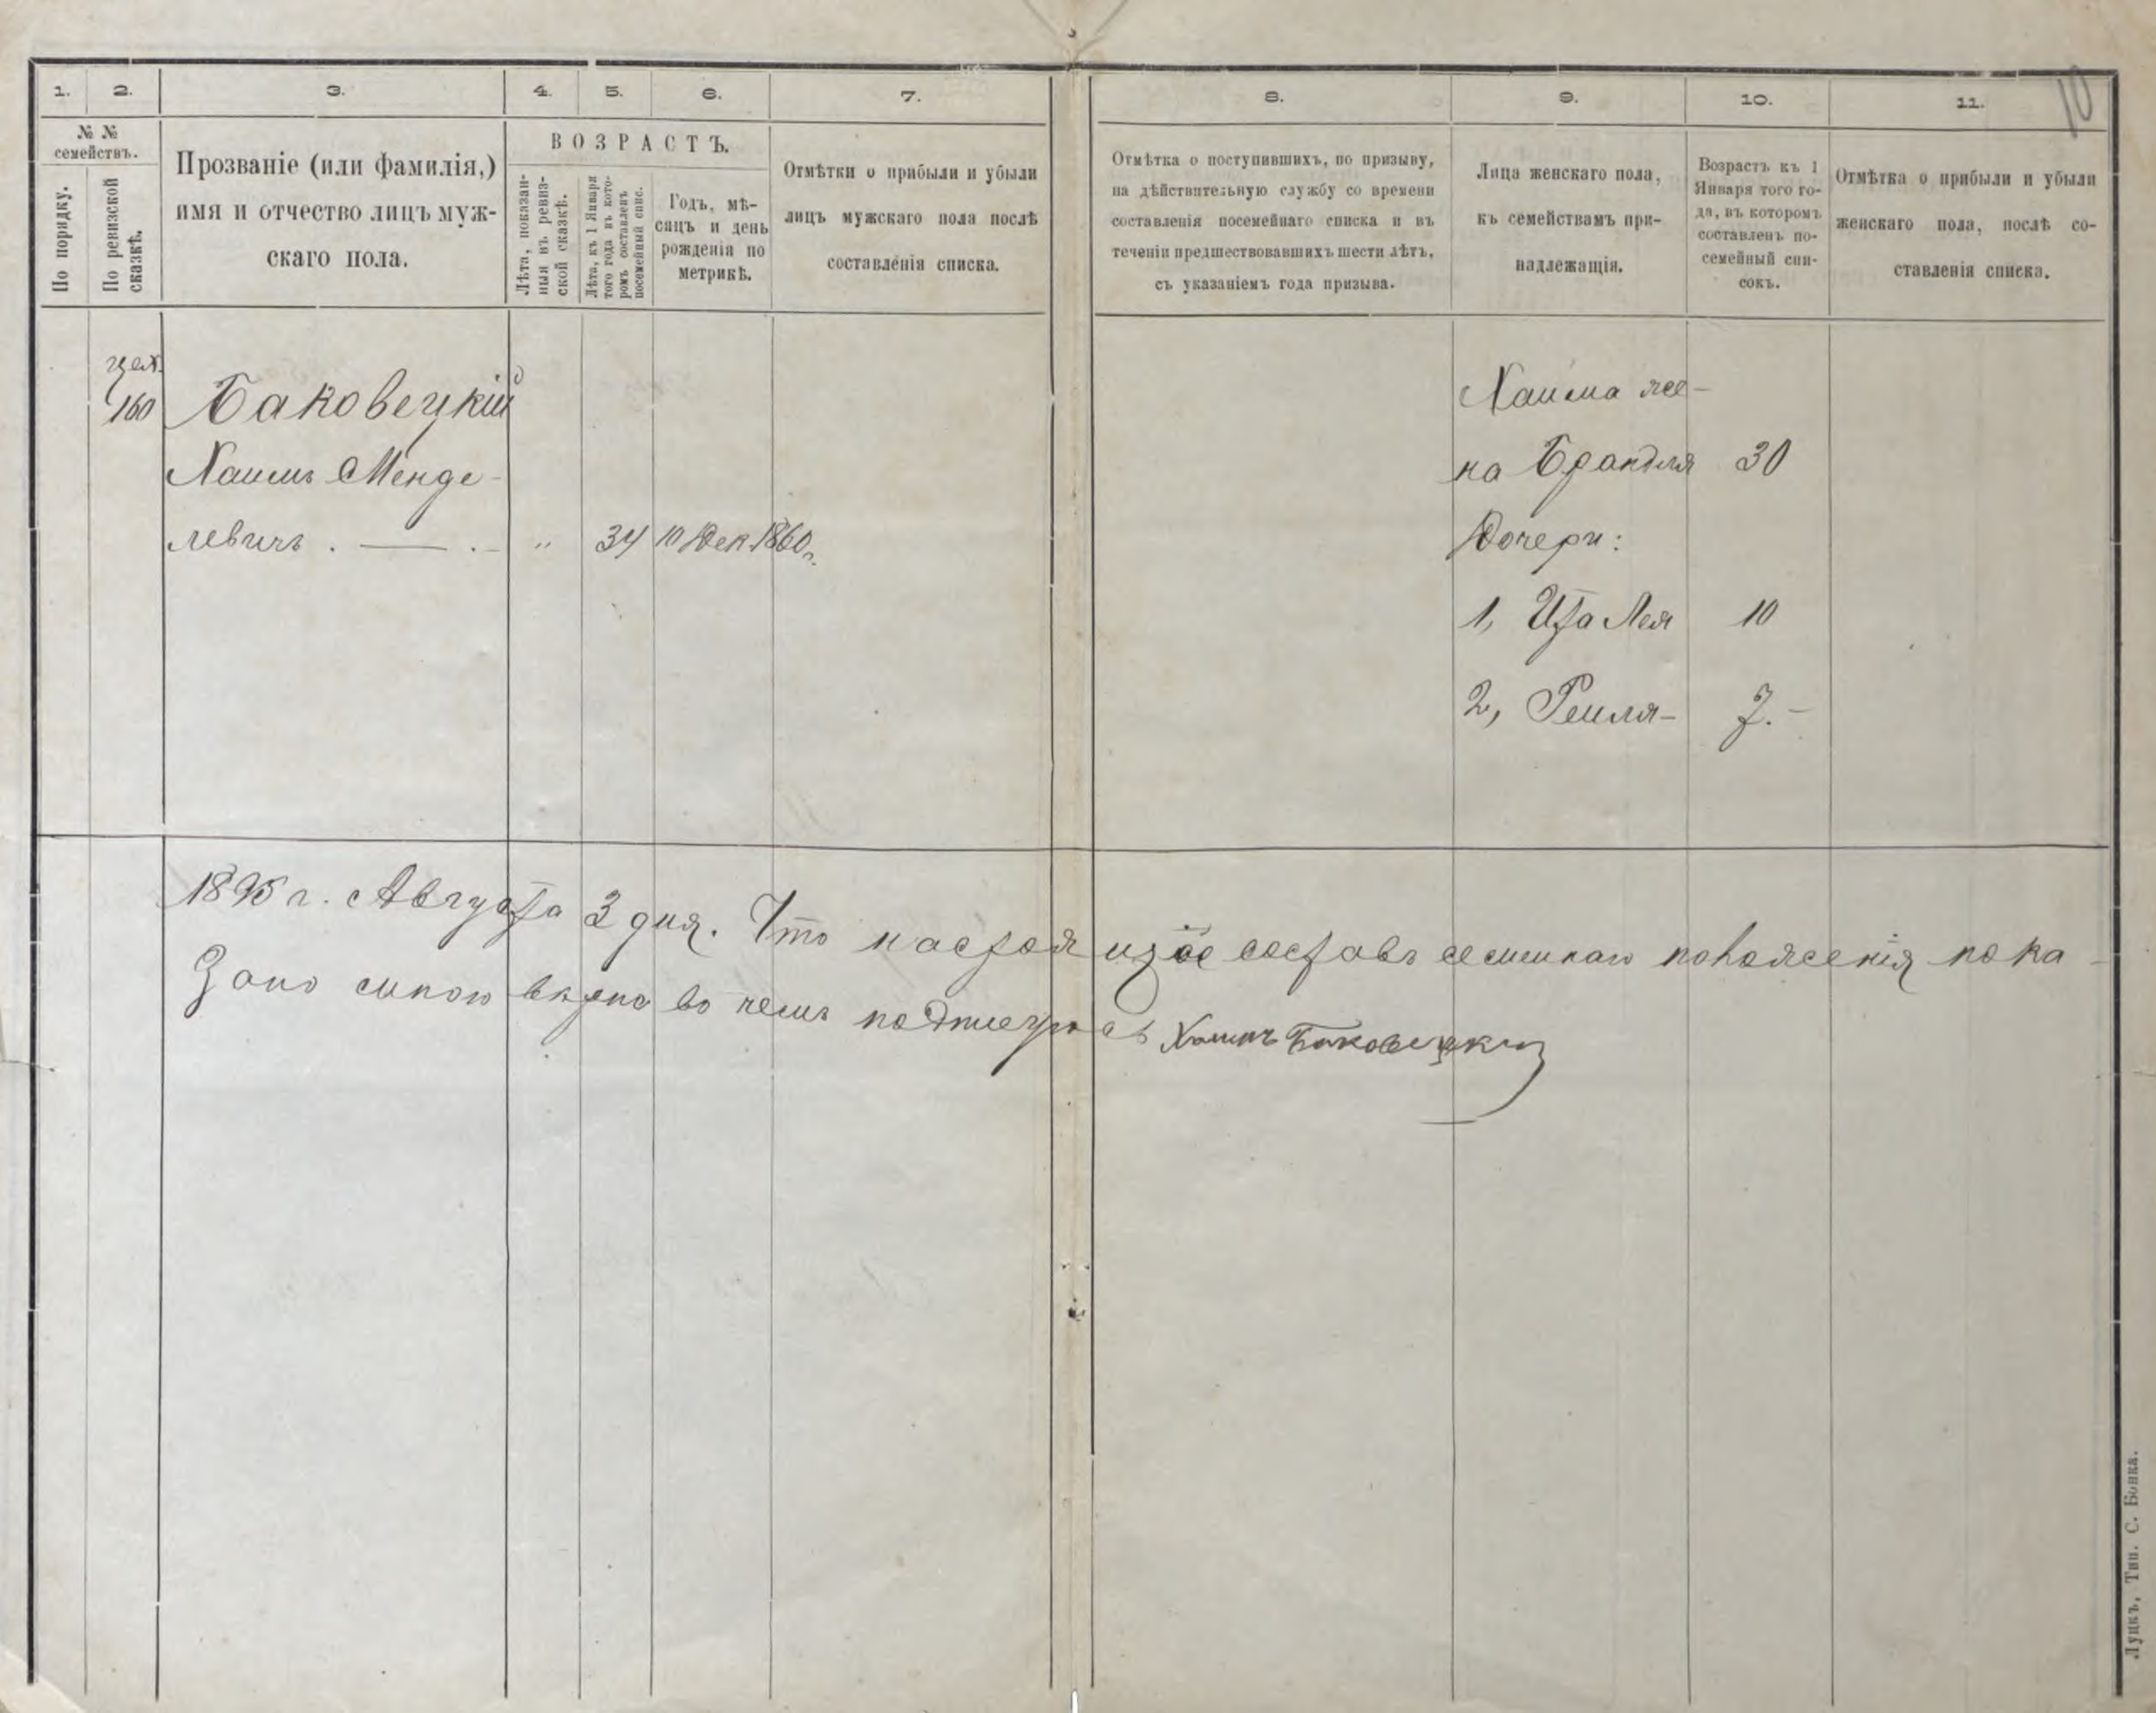 1. 2. 3. 4. 5. 6. 7. 8. 9. 10. 11.
10
№ №
семействъ.
По порядку.
По ревизской
сказкѣ.
Прозваніе (или фамилія,)
имя и отчество лицъ муж-
скаго пола.
ВОЗРАСТЪ.
Лѣта, показан-
ныя въ ревиз-
ской сказкѣ.
Лѣта, къ 1 Января
того года въ кото-
ромъ составленъ
посемейный спис.
Годъ, мѣ-
сяцъ и день
рожденія по
метрикѣ.
Отмѣтки о прибыли и убыли
лицъ мужскаго пола послѣ
составленія списка.
Отмѣтка о поступившихъ, по призыву,
на дѣйствительную службу со времени
составленія посемейнаго списка и въ
теченіи предшествовавшихъ шести лѣтъ,
съ указаніемъ года призыва.
Лица женскаго пола,
къ семействамъ при-
надлежащія.
Возрастъ къ 1
Января того го-
да, въ которомъ
составленъ по-
семейный спи-
сокъ.
Отмѣтка о прибыли и убыли
женскаго пола, послѣ со-
ставленія списка.
160 Баковецкій
Хаимъ Менде-
левичъ . — . - " 34 10 Дек. 1860 г.
Хаима же-
на Брандля 30
Дочери:
1, Ита Лея 10
2, Рейля- 7.-
1895 г. Августа 3 дня. Что настоящое составъ положенія пока-
зано мною вѣрно во чемъ Хаимъ Баковецкій
Луцкъ, Тип. С. Бонка.